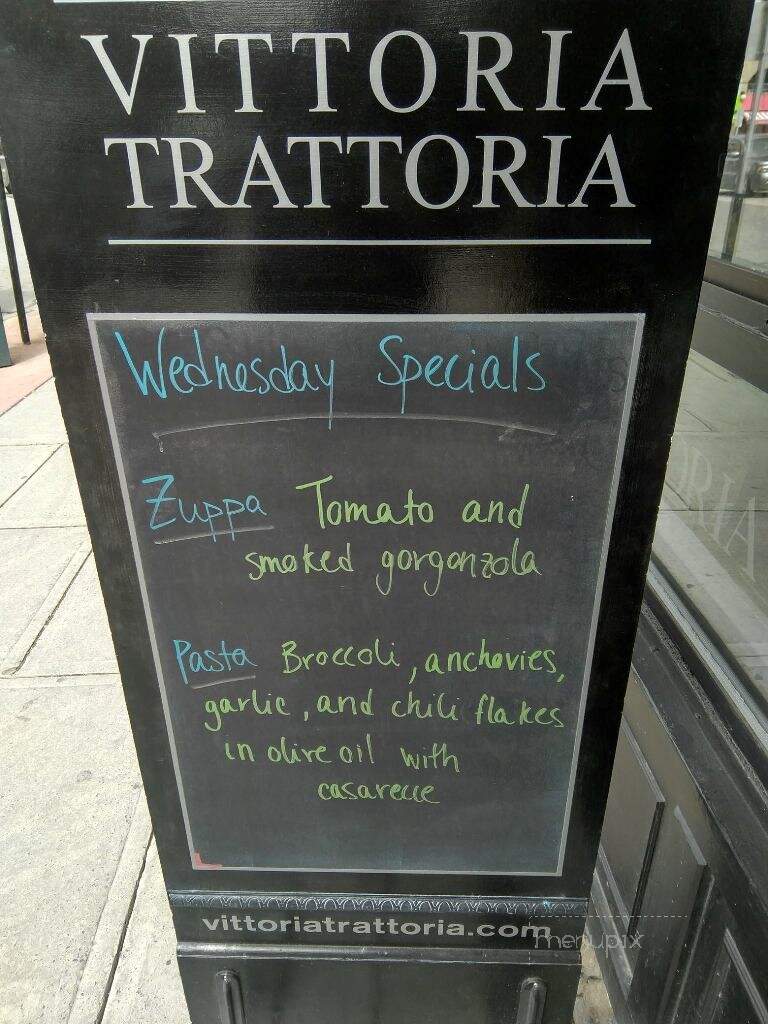 VITTORIA
TRATTORIA
Wednesday Specials
Zuppa Tomato and
smoked gorgonzola
Pasta Broccoli, anchovies,
garlic, and chili flakes
in olive oil with
casarecce
vittoriatrattoria.com
menupix
RIA